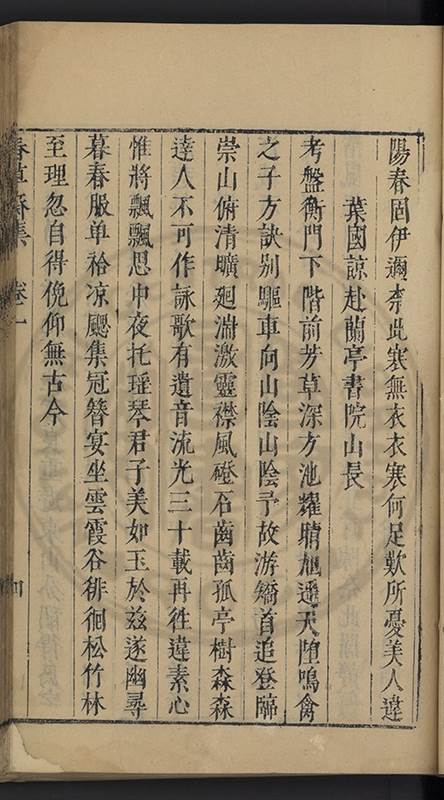 陽春固伊邇奈此寒無衣衣寒何足歎所憂美人違
葉國諒赴蘭亭書院山長
考盤衡門下階前芳草深方池耀晴旭遥天墮鳴禽
之子方訣别驅車向山陰山陰予故游矯首追登臨
崇山俯清曠廻湍激靈襟風磴石齒齒孤亭樹森森
達人不可作詠歌有遺音流光三十載再徃違素心
惟將飄飄思中夜托瑶琴君子美如玉於兹遂幽尋
暮春服单袷凉颸集冠簪宴坐雲霞谷徘徊松竹林
至理忽自得俛仰無古今
春草齋集 卷一 四